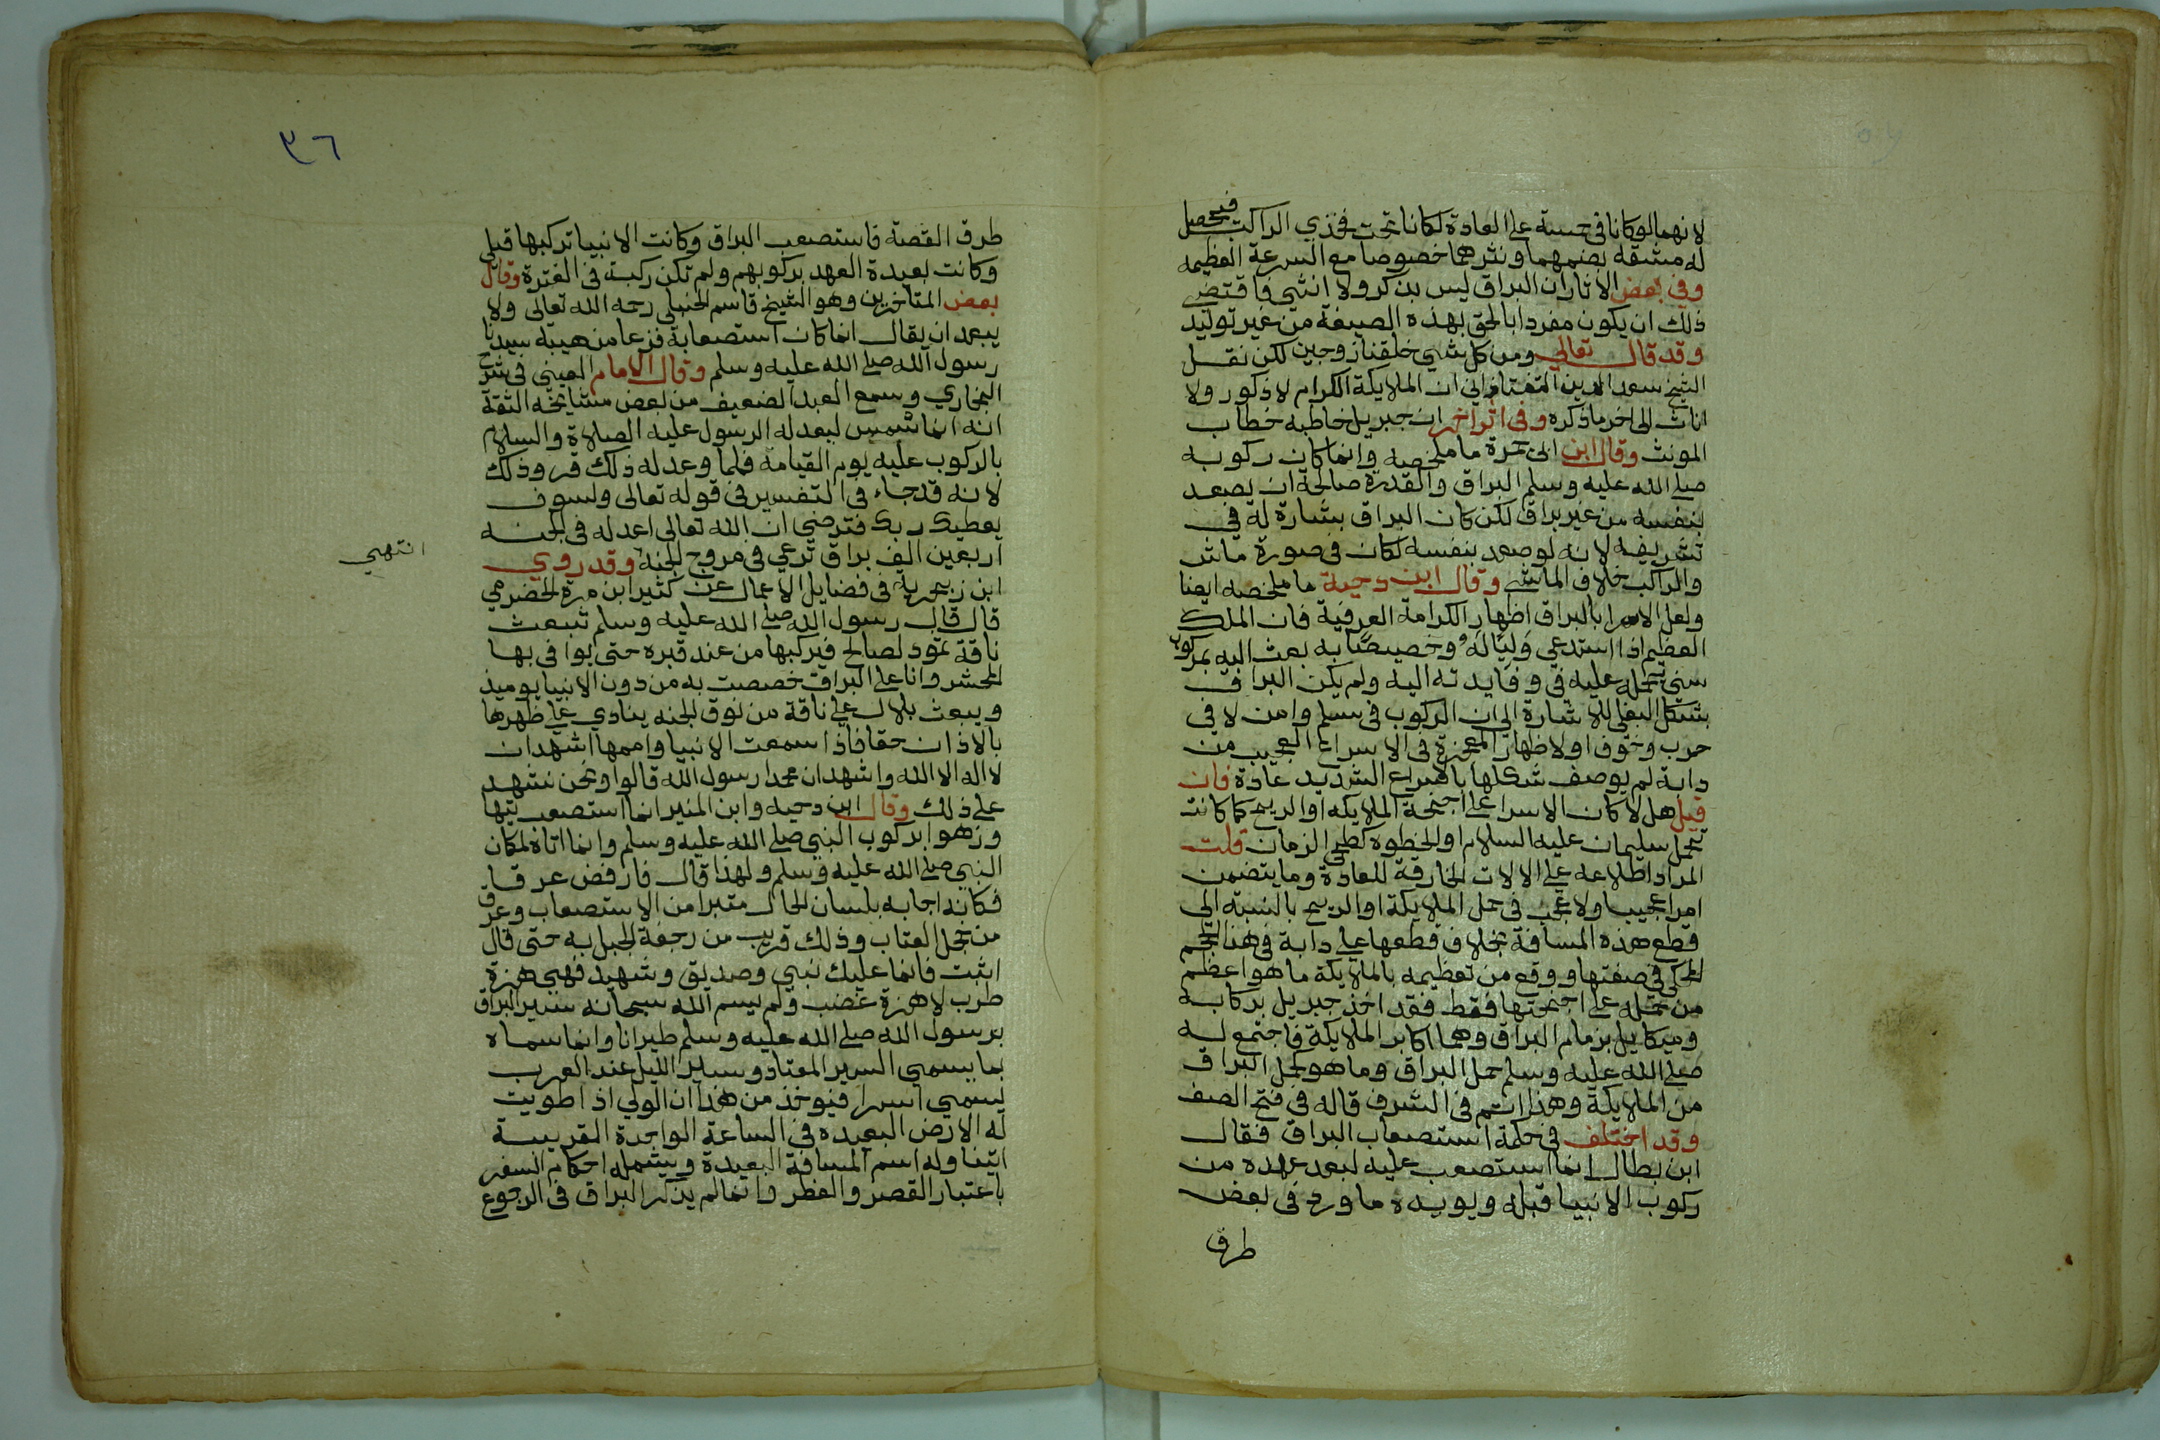 لانهما لوكانا في جسمه على العادة لكانا تحت فخذي الراكب فيحصل
له مشقة بضمهما ونشرهما خصوصا مع السرعة العظيمه
وفي بعض الاثار ان البراق ليس بذكر ولا انثى فاقتضى
ذلك ان يكون مفردا بالحق بهذه الصفة من غير توليد
وقد قال تعالى ومن كل شي خلقنا زوجين لكن نقل
الشيخ سعد الدين التفتازاني ان الملايكة الكرام لا ذكور ولا
اناث الى اخر ما ذكره وفي اثر اخر ان جبريل خاطبه خطاب
المونث وقال ابن ابي جمرة ما ملخصه وانما كان ركوبه
صلى الله عليه وسلم البراق والقدرة صالحة ان يصعد
بنفسه من غير براق لكن كان البراق بشارة له في
تشريفه لانه لو صعد بنفسه لكان في صورة ماش
والراكب خلاف الماشي وقال ابن دحية ما ملخصه ايضا
ولعل الاسرا بالبراق اظهار الكرامة العرفية فان الملك
العظيم اذا استدعى وليا له وخصيصا به بعث اليه بمركوب
سني يحمله عليه في وفايدته اليه ولم يكن البراق
بشكل البغل للاشارة الى ان الركوب في سلم وامن لا في
حرب وخوف او لاظهار المعجزة في الاسراع العجيب من
دابة لم يوصف شكلها بالاسراع الشديد عادة فان
قيل هل لا كان الاسرا على اجنحة الملايكه او الريح كما كانت
تحمل سليمان عليه السلام او الخطوة كطي الزمان قلت
المراد اطلاعه على الالات الخارقة للعادة وما يتضمن
امرا عجيبا ولا عجب في حمل الملايكة او الريح بالنسبة الى
قطع هذه المسافة بخلاف قطعها على دابة في هذا الحجم
المحكي في صفتها ووقع من تعظيمه بالملايكة ما هو اعظم
من حمله على اجنحتها فقط فقد اخذ جبريل بركابه
وميكاييل بزمام البراق وهما اكابر الملايكة فاجتمع له
صلى الله عليه وسلم حمل البراق وما هو كحمل البراق
من الملايكة وهذا اتم في الشرف قاله في فتح الصف
وقد اختلف في حكمة استصعاب البراق فقال
ابن بطال انما استصعب عليه لبعد عهده من
ركوب الانبيا قبله ويويده ما ورد في بعض
طرق
٣٦
طرق القصة فاستصعب البراق وكانت الانبيا تركبها قبلي
وكانت بعيدة العهد بركوبهم ولم تكن ركبة في الفترة وقال
بعض المتاخرين وهو الشيخ قاسم الحنبلي رحمه الله تعالى ولا
يبعد ان يقال انما كان استصعابه فزعا من هيبة سيدنا
رسول الله صلى الله عليه وسلم وقال الامام العيني في شرح
البخاري وسمع العبد الضعيف من بعض مشايخه الثقة
انه انما شمس ليعد له الرسول عليه الصلاة والسلام
بالركوب عليه يوم القيامة فلما وعد له ذلك قر وذلك
لانه قد جاء في التفسير في قوله تعالى ولسوف
يعطيك ربك فترضى ان الله تعالى اعد له في الجنه
اربعين الف براق ترعى في مروج الجنة وقد روي
انتهى
ابن زنجويه في فضايل الاعمال عن كثير ابن مرة الحضرمي
قال قال رسول الله صلى الله عليه وسلم تبعث
ناقة ثمود لصالح فيركبها من عند قبره حتى يوافي بها
المحشر وانا على البراق خصصت به من دون الانبيا يوميذ
ويبعث بلال على ناقة من نوق الجنه ينادي على ظهرها
بالاذان حقا فاذا سمعت الانبيا واممها اشهد ان
لا اله الا الله واشهد ان محمدا رسول الله قالوا ونحن نشهد
على ذلك وقال ابن دحيه وابن المنير انما استصعب تيها
وزهوا بركوب النبي صلى الله عليه وسلم وانما اتاه لمكان
النبي صلى الله عليه وسلم ولهذا قال فارفض عرقا
فكانه اجابه بلسان الحال متبرا من الاستصعاب وعرق
من خجل العتاب وذلك قريب من رجفة الجبل به حتى قال
اثبت فانما عليك نبي وصديق وشهيد فهي هزة
طرب لا هزة غضب ولم يسم الله سبحانه سير البراق
برسول الله صلى الله عليه وسلم طيرانا وانما سماه
بما يسمى السير المعتاد وسير الليل عند العرب
يسمى اسرا فيوخذ من هذا ان الولي اذا طويت
له الارض البعيده في الساعة الواحدة القريبة
اتناوله اسم المسافة البعيدة ويشمله احكام السفر
باعتبار القصر والفطر وانما لم يذكر البراق في الرجوع